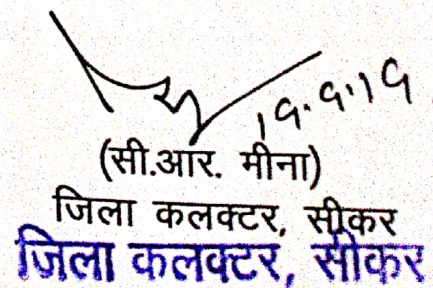 19.9.19
(सी.आर. मीना)
जिला कलक्टर, सीकर
जिला कलक्टर, सीकर